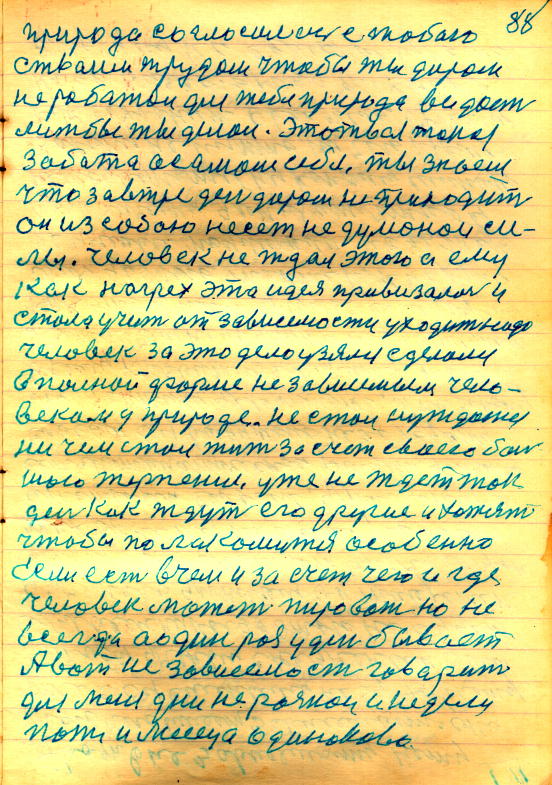 88
природа согласилен с тобою
ствами трудом чтобы ты даром
не работал для тебя природа не даст
лижбы ты делал. Этот твая такая
забата о самом себя, ты знаеш
что завтре ден даром не приходит
он из собою несет не думоной си-
лы. человек не ждал этого а ему
как нагрех эта идея привизалас и
стала учит от зависемости уходит надо
человек за это дело узялся сделался
в полной форме не зависимым чело-
векам у природе. не стал нуждатся
ни чем стал жит за счет своего бол
шого терпения, уже не ждет так
ден как ждут его другие и хотят
чтобы полакомится особенно
если ест в чем и за счет чего и где
человек может пироват но не
всегда а один раз у дни бывает
А вот не зависемост говарит
для меня дни не разной и недели
пяти и месеца одинокова